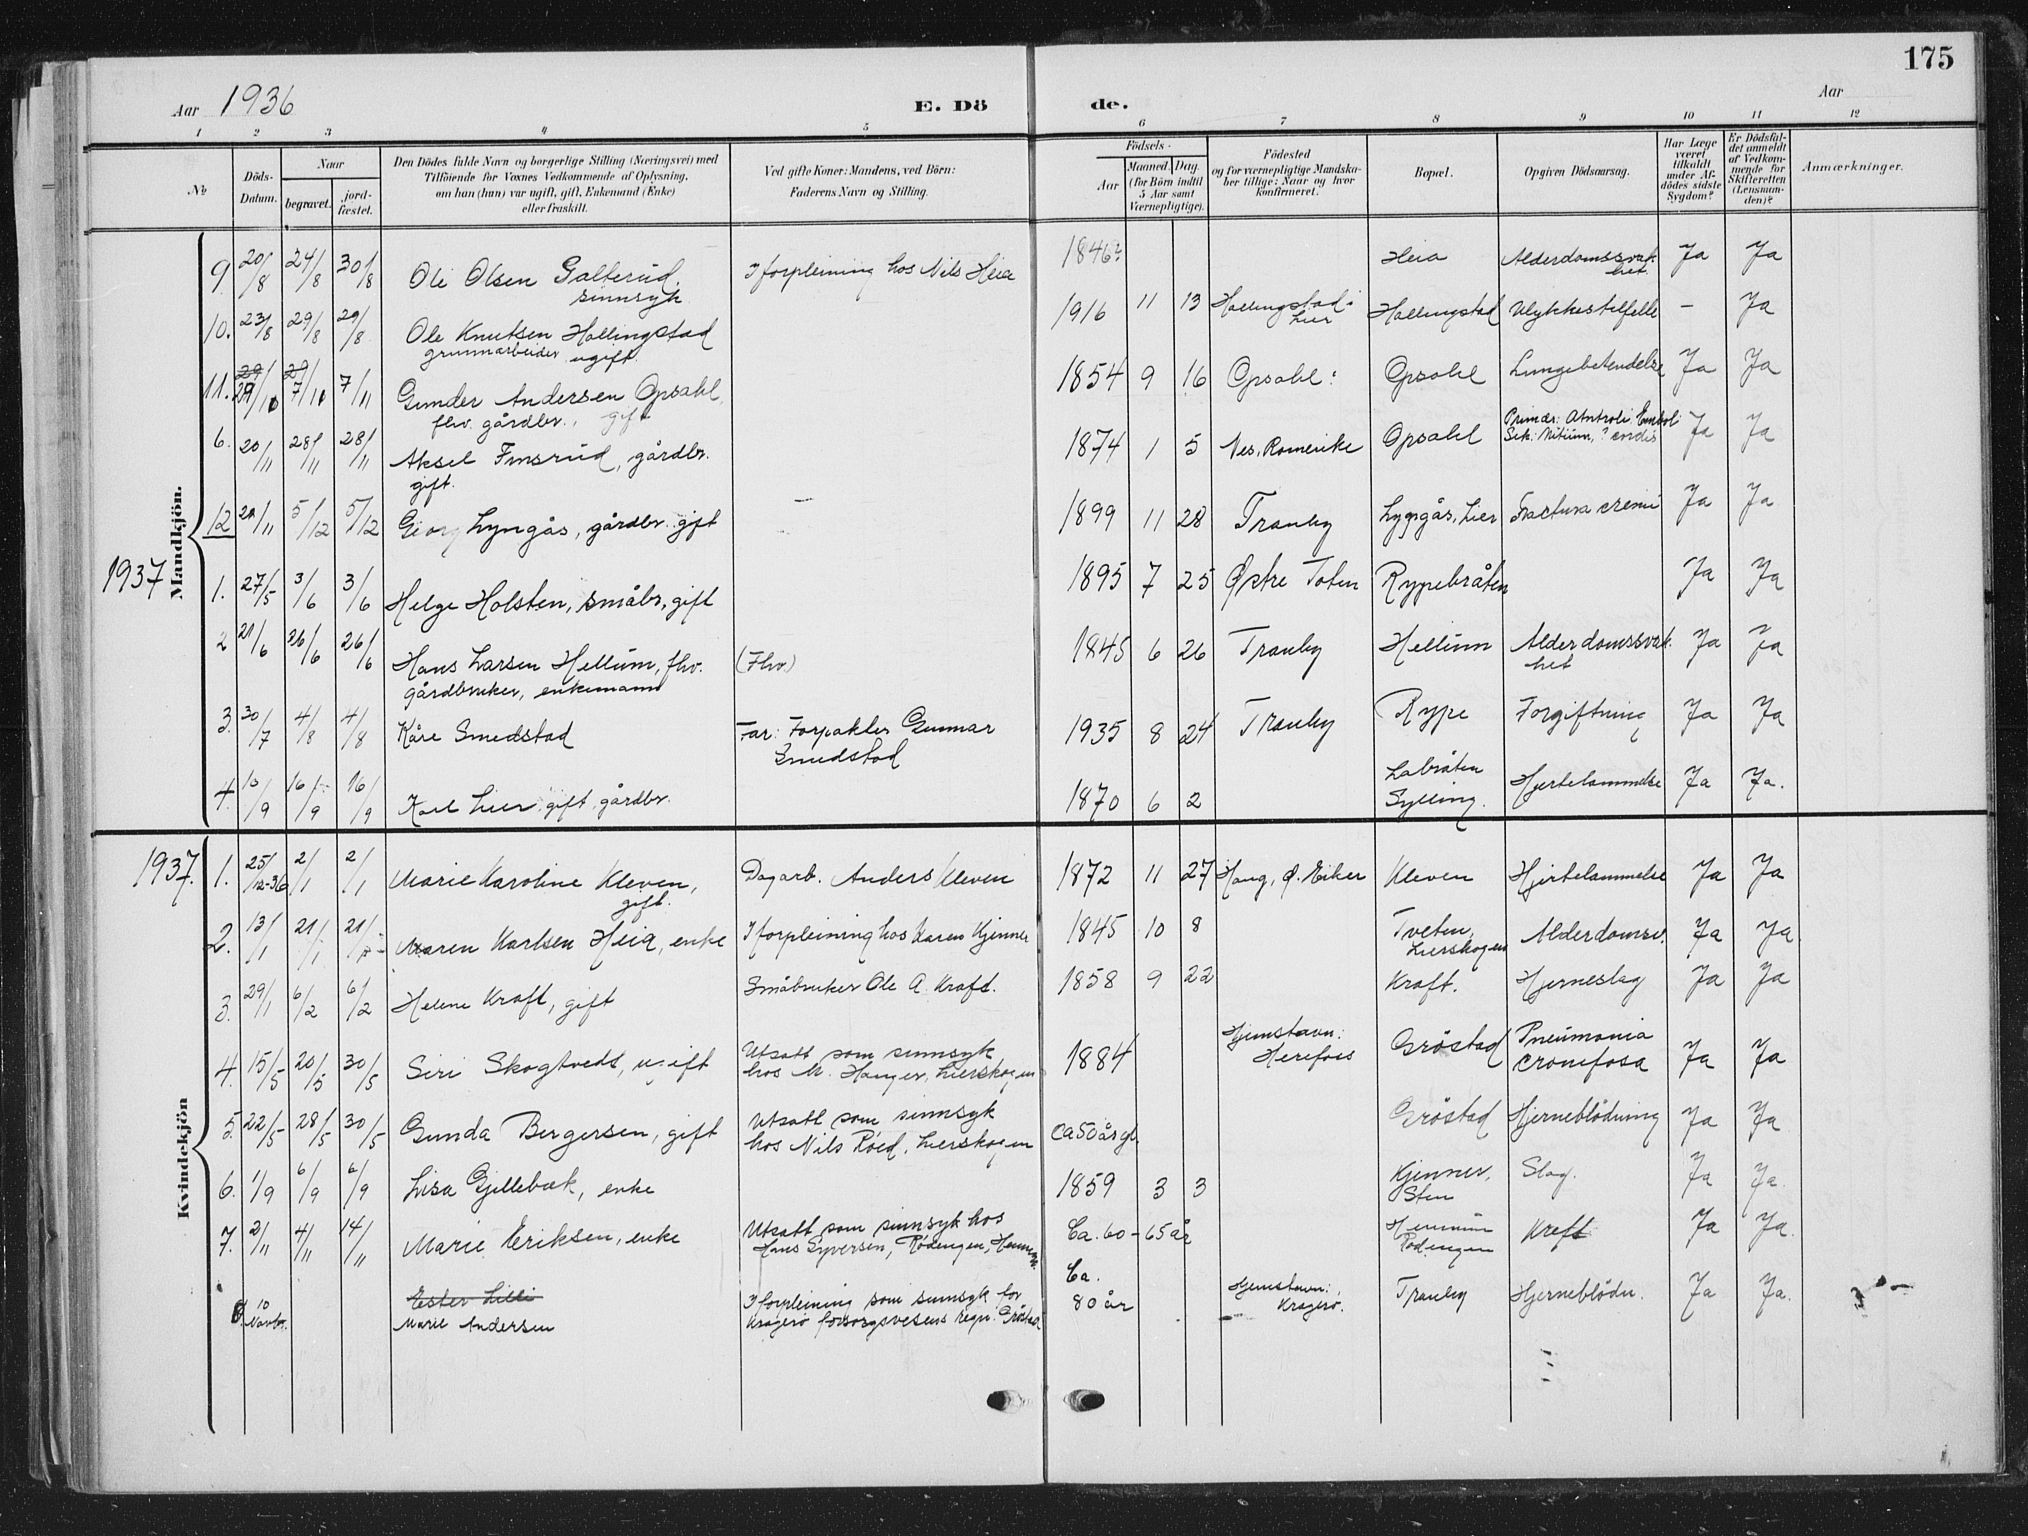 175
Aar 1936
E. Döde.
Aar
1 2 3 4 5 6 7 8 9 10 11 12
№
Døds-Datum.
Naar
begravet.
jord-fæstet.
Den Dødes fulde Navn og borgerlige Stilling (Næringsvei) med
Tilføiende for Voxnes Vedkommende af Oplysning,
om han (hun) var ugift, gift, Enkemand (Enke)
eller fraskilt.
Ved gifte Koner: Mandens, ved Börn:
Faderens Navn og Stilling.
Födsels-
Aar
Maaned. Dag.
(for Börn indtil
5 Aar samt
Værnepligtige).
Födested
og for værnepligtige Mandska-
ber tillige: Naar og hvor
konfirmeret.
Bopæl.
Opgiven Dödsaarsag.
Har Læge
været
tilkaldt
under Af-
dödes sidste
Sygdom?
Er Dödsfal-
det anmeldt
af Vedkom-
mende for
Skifteretten
(Lensman-
den)?
Anmærkninger.
Mandkjön.
9 20/8 24/8 30/8 Ole Olsen Galterud, I forpleining hos Nils Heia 1846? Heia Alderdomssvak- Ja Ja
sinnsyk het
10. 23/8 29/8 29/8 Ole Knutsen Hallingstad 1916 11 13 Hallingstad i Hallingstad Ulykkestilfelle – Ja
grunnarbeider ugift. Lier
11. 29/10 7/11 7/11 Gunder Andersen Opsahl, 1854 9 16 Opsahl: Opsahl Lungebetendelse Ja Ja
fhv. gårdbr., gift
6. 20/11 28/11 28/11 Aksel Finsrud, gårdbr. 1874 1 5 Nes, Romerike Opsahl Primær: Embol. Ja Ja
gift.
12 21/11 5/12 5/12 Georg Lyngås, gårdbr. gift – 1899 11 28 Tranby Lyngås, Lier Fractura cranii Ja Ja
1937
1. 27/5 3/6 3/6 Helge Holsten, småbr, gift 1895 7 25 Østre Toten Rypebråten Ja Ja
2 21/6 26/6 26/6 Hans Larsen Hellum, fhv. (Fhv.) 1845 6 26 Tranby Hellum Alderdomssvak- Ja Ja
gårdbruker, enkemann het
3. 30/7 4/8 4/8 Kåre Smedstad Far: Forpakter Gunnar 1935 8 24 Tranby Rype Forgiftning Ja Ja
Smedstad
4. 10/9 16/9 16/9 Karl Lier, gift, gårdbr. 1870 6 2 Labråten Hjertelammelse Ja Ja.
Sylling.
Kvindekjön
1937. 1. 25/12-36 2/1 2/1 Marie Karoline Kleven, Dagarb. Anders Kleven 1872 11 27 Haug, Ø. Eiker Kleven Hjertelammelse Ja Ja
gift.
2. 13/1 21/1 21/1 Maren Karlsen Heia, enke I forpleining hos Karen Kjenner 1845 10 8 Tveten, Alderdomsv. Ja Ja.
Lierskogen
3. 29/1 6/2 6/2 Helene Kraft, gift Småbruker Ole A. Kraft. 1858 9 22 Kraft. Hjerneslag Ja Ja
4. 15/5 20/5 30/5 Siri Skogtvedt, ugift Utsatt som sinnsyk 1884 Hjemstavn: Gröstad Pneumonia Ja Ja
hos M. Hauger, Lierskogen Herefoss
5. 22/5 28/5 30/5 Gunda Bergersen, gift Utsatt som sinnsyk ca 50 år gl. Gröstad Hjerneblödning Ja Ja
hos Nils Röed, Lierskogen
6. 1/9 6/9 6/9 Lisa Gjellebæk, enke 1859 3 3 Kjenner, Slag. Ja Ja.
Sten
7. 2/11 4/11 14/11 Marie Eriksen, enke Utsatt som sinnsyk hos Ca. 60-65 år Hennum Kreft Ja Ja.
Hans Syversen, Rödengen, Hennum. Rödengen
10 Novbr. Ester Lilli I forpleining som sinnsyk for Ca. 80 år Hjemstavn: Tranby Hjerneblödn. Ja Ja.
Marie Andersen Kragerö forsorgsvesens regn. Gröstad Kragerö.